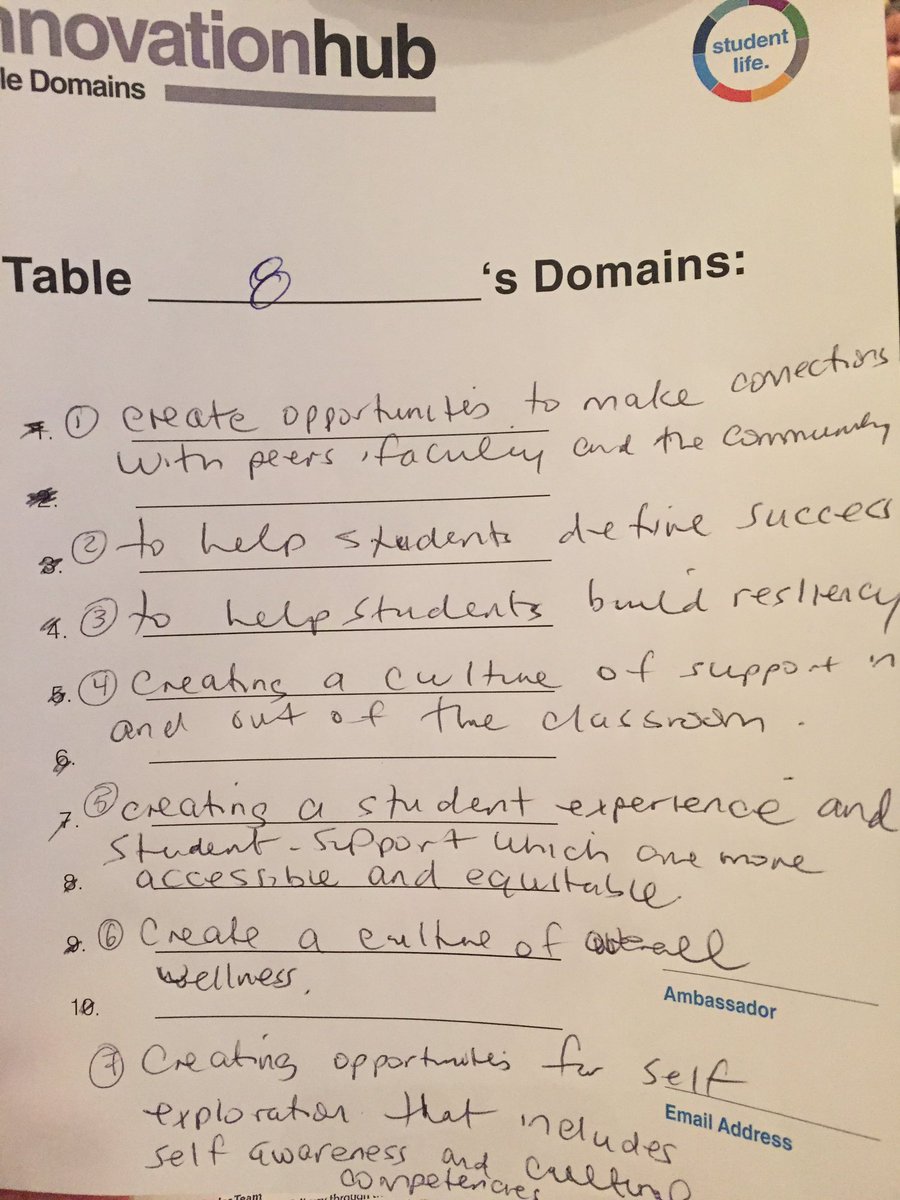 nnovationhub
le Domains
student
life.
Table 8 's Domains:
1. ① create opportunities to make connections
with peers, faculty and the community
2.
3. ② to help students define success
4. ③ to help students build resliency
5. ④ Creating a culture of support in
and out of the classroom.
6.
7. ⑤ creating a student experience and
student-support which are more
8. accessible and equitable
9. ⑥ Create a culture of overall
wellness.
Ambassador
10.
⑦ Creating opportunities for self
exploration that includes
Email Address
self awareness and cultural
competencies
Team
through